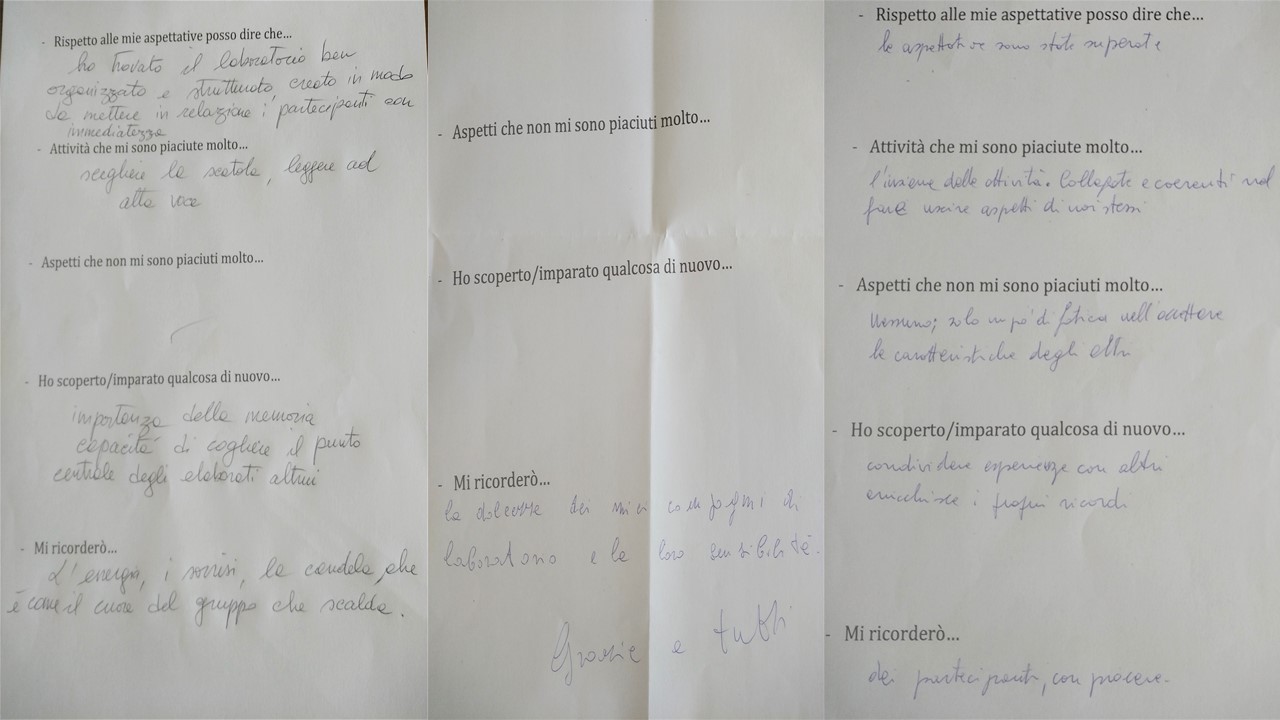 - Rispetto alle mie aspettative posso dire che...
ho trovato il laboratorio ben
organizzato e strutturato, creato in modo
da mettere in relazione i partecipanti con
immediatezza
- Attività che mi sono piaciute molto...
scegliere la scatola, leggere ad
alta voce
- Aspetti che non mi sono piaciuti molto...
- Ho scoperto/imparato qualcosa di nuovo...
importanza della memoria
capacità di cogliere il punto
centrale degli elaborati altrui
- Mi ricorderò...
L'energia, i sorrisi, la candela, che
è come il cuore del gruppo che scalda.
- Aspetti che non mi sono piaciuti molto...
- Ho scoperto/imparato qualcosa di nuovo...
- Mi ricorderò...
la dolcezza dei miei compagni di
laboratorio e la loro sensibilità.
Grazie a tutti
- Rispetto alle mie aspettative posso dire che...
le aspettative sono state superate
- Attività che mi sono piaciute molto...
l'insieme delle attività. Collegate e coerenti nel
fare uscire aspetti di noi stessi
- Aspetti che non mi sono piaciuti molto...
Nessuno; solo un po' di fatica nell'
le caratteristiche degli altri
- Ho scoperto/imparato qualcosa di nuovo...
condividere esperienze con altri
arricchisce i propri ricordi
- Mi ricorderò...
dei partecipanti, con piacere.